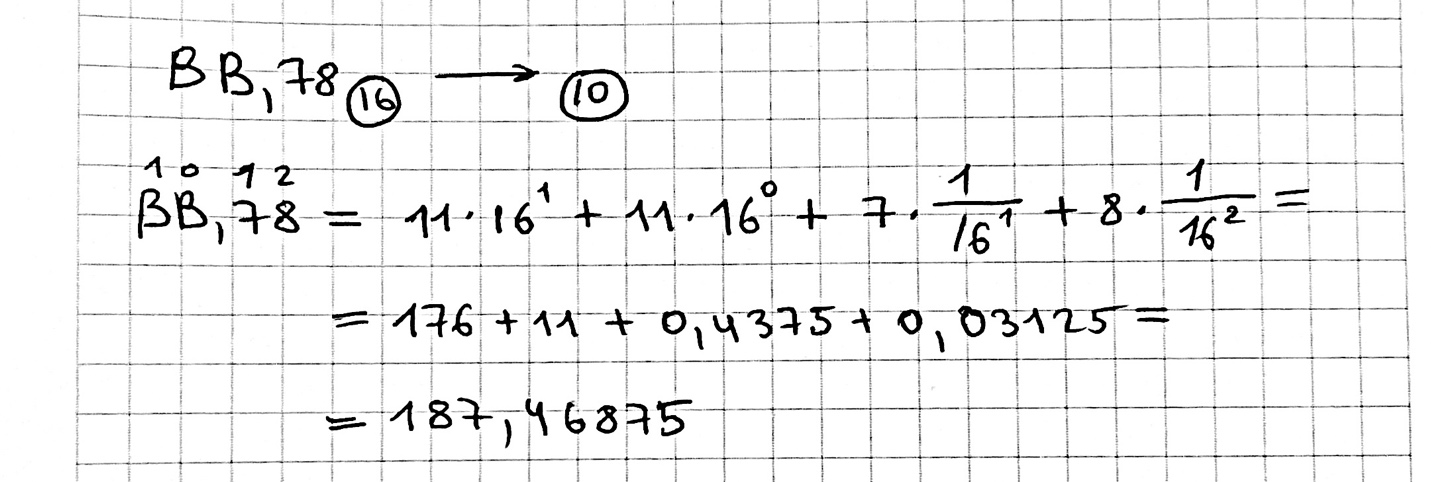 BB,78 (16) → (10)
1 0 1 2
BB,78 = 11·16¹ + 11·16⁰ + 7·1/16¹ + 8·1/16² =
= 176 + 11 + 0,4375 + 0,03125 =
= 187,46875